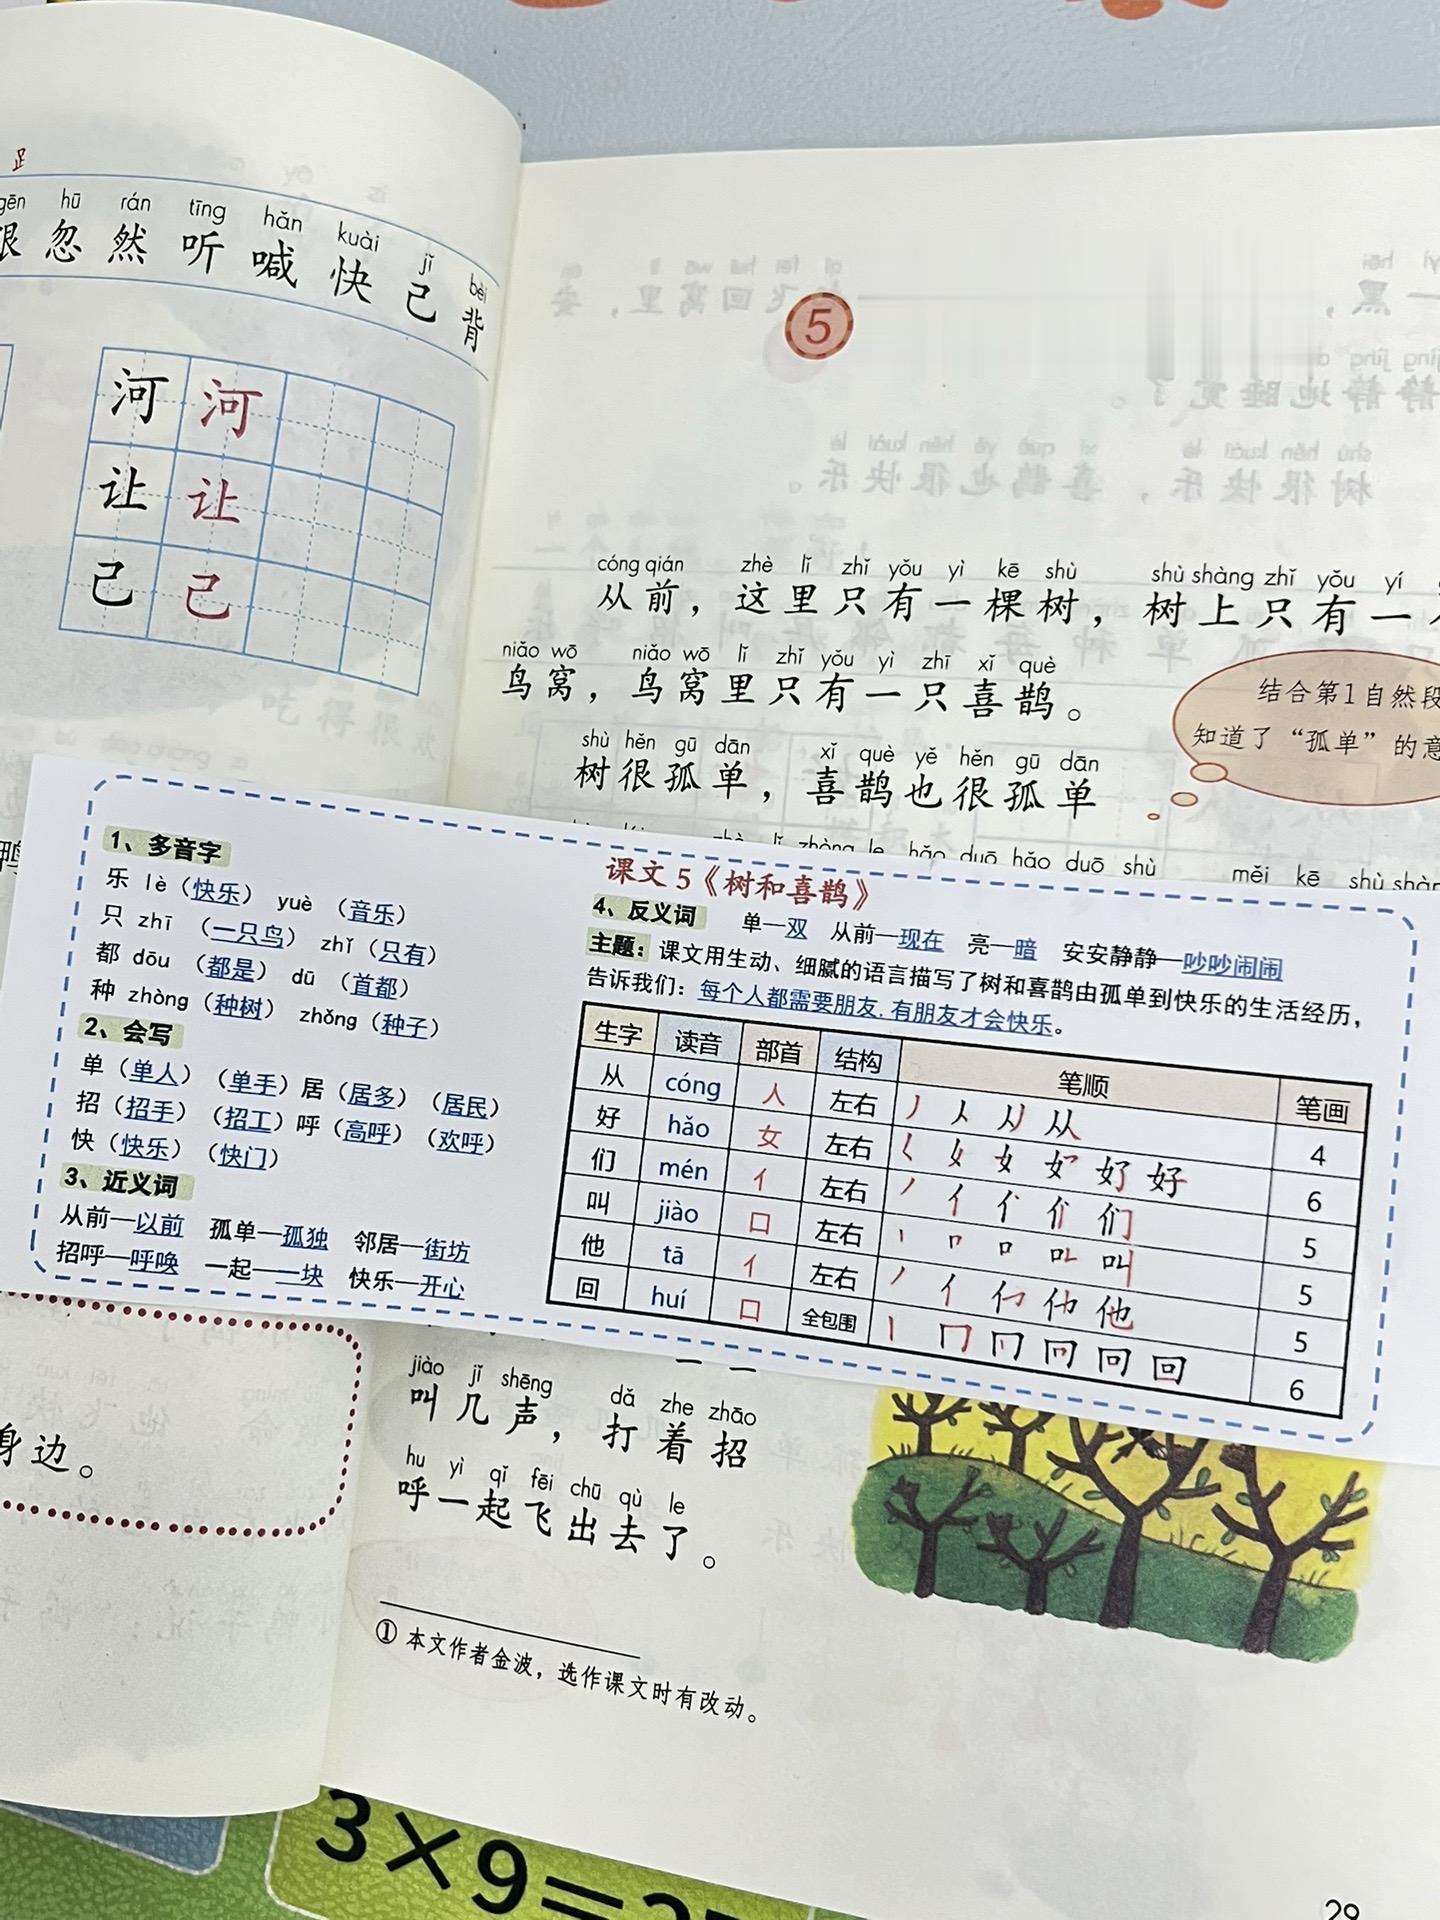 足
gēn hū rán tīng hǎn kuài jǐ bèi
跟 忽 然 听 喊 快 己 背
河 河
让 让
己 己
5
cóng qián zhè lǐ zhǐ yǒu yì kē shù shù shàng zhǐ yǒu yí
从前，这里只有一棵树，树上只有一个
niǎo wō niǎo wō lǐ zhǐ yǒu yì zhī xǐ què
鸟窝，鸟窝里只有一只喜鹊。
shù hěn gū dān xǐ què yě hěn gū dān
树很孤单，喜鹊也很孤单
zhè lǐ zhòng le hǎo duō hǎo duō shù měi kē shù shàng
结合第1自然段
知道了“孤单”的意
课文5《树和喜鹊》
1、多音字
乐 lè（快乐） yuè （音乐）
只 zhī （一只鸟） zhǐ（只有）
都 dōu （都是） dū （首都）
种 zhòng（种树） zhǒng（种子）
2、会写
单（单人）（单手）居（居多）（居民）
招（招手）（招工）呼（高呼）（欢呼）
快（快乐）（快门）
3、近义词
从前—以前 孤单—孤独 邻居—街坊
招呼—呼唤 一起—一块 快乐—开心
4、反义词 单—双 从前—现在 亮—暗 安安静静—吵吵闹闹
主题：课文用生动、细腻的语言描写了树和喜鹊由孤单到快乐的生活经历，
告诉我们：每个人都需要朋友.有朋友才会快乐。
生字 读音 部首 结构 笔顺 笔画
从 cóng 人 左右 丿 从 4
好 hǎo 女 左右 好 6
们 mén 亻 左右 丿 亻 们 5
叫 jiào 口 左右 丨 口 叫 5
他 tā 亻 左右 丿 亻 他 5
回 huí 口 全包围 丨 冂 回 6
身边。
jiào jǐ shēng dǎ zhe zhāo
叫几声，打着招
hu yì qǐ fēi chū qù le
呼一起飞出去了。
① 本文作者金波，选作课文时有改动。
29
3×9=27